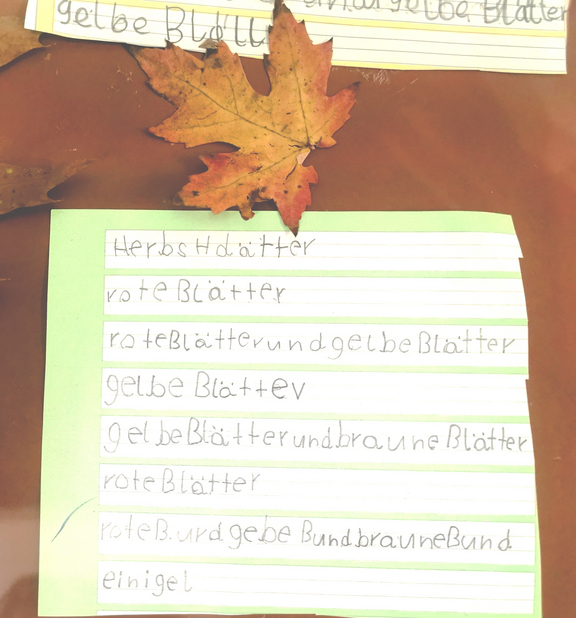 gelbe Blätter
gelbe Blätt
HerbsHdätter
rote Blätter
roteBlätterundgelbeBlätter
gelbe Blätter
gelbeBlätterundbrauneBlätter
roteBlätter
roteB.urdgebe BundbrauneBund
einigel